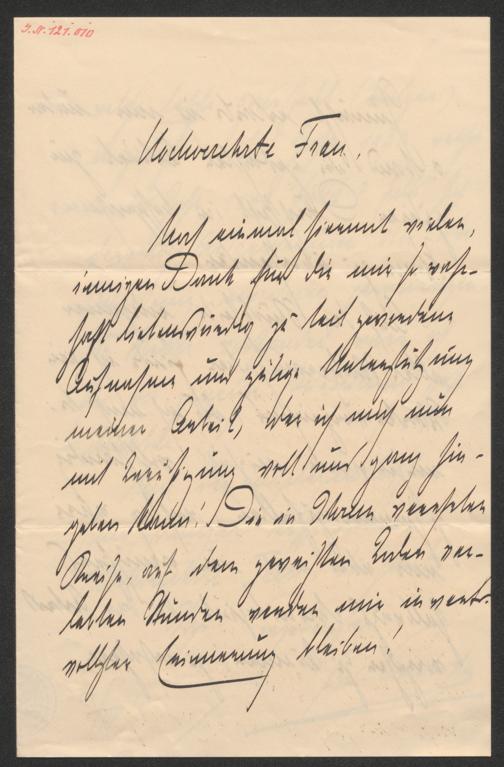 J.N. 121.010
Hochverehrte Frau,
Noch einmal hiermit vielen,
innigen Dank für die mir so wahr-
haft liebenswürdig zu teil gewordene
Aufnahme und gütige Unterstützung
meiner Arbeit, der ich mich nun
mit Beruhigung voll und ganz hin-
geben kann! Die in Ihrem verehrten
Kreise, auf dem geweihten Boden ver-
lebten Stunden werden mir in wert-
vollster Erinnerung bleiben!